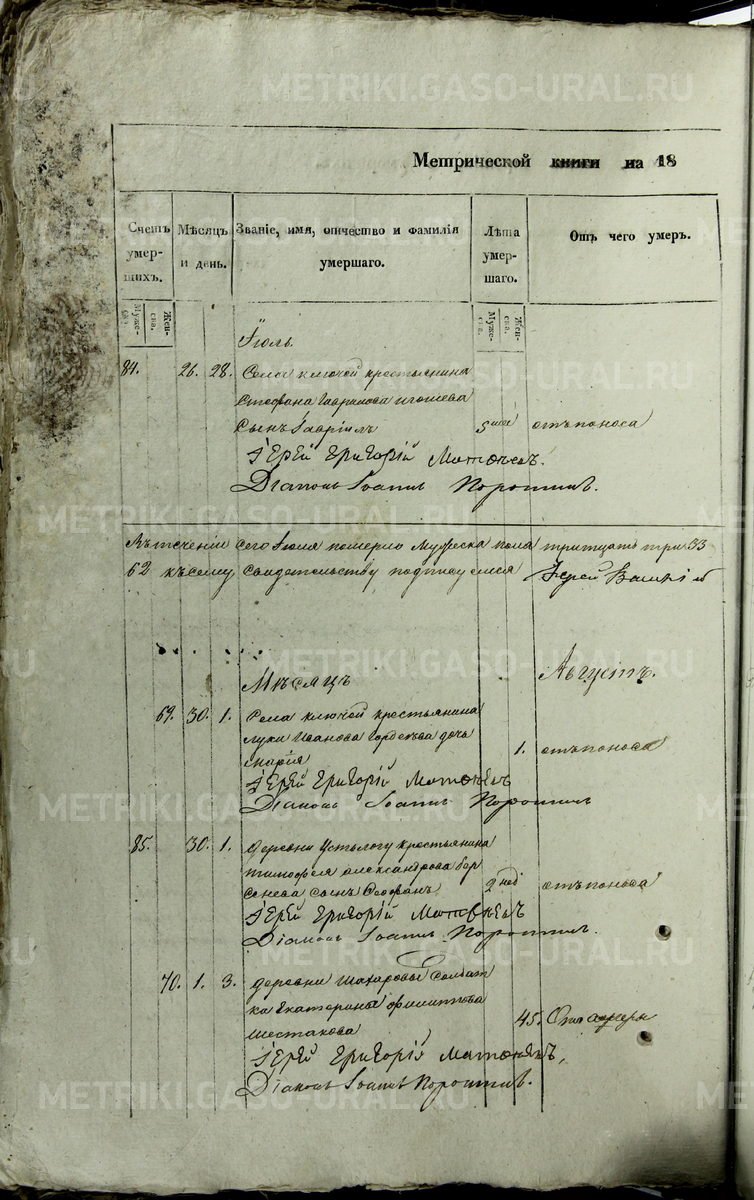 METRIKI.GASO-URAL.RU
Метрической книги на 18
Счетъ умер- шихъ.
Мѣсяцъ и день.
Званіе, имя, отчество и фамилія умершаго.
Лѣта умер- шаго.
Отъ чего умеръ.
Муже- ска.
Жен- ска.
Муже- ска.
Жен- ска.
Іюль.
84. 26. 28. Села ключей крестьянина
Стефана Гаврилова
сынъ Гавріилъ 5 отъ поноса
Іерей Григорій Матвѣевъ.
Діаконъ Іоаннъ Поротовъ.
Въ теченіи сего Іюля померло Мужеска пола тритцать три 33
62 къ сему свидетельству подписуемся Іерей
Мѣсяцъ Августъ.
69. 30. 1. Села ключей крестьянина
Луки Иванова Гордеева дочь
Марія 1. отъ поноса
Іерей Григорій Матвѣевъ
Діаконъ Іоаннъ Поротовъ
85. 30. 1. деревни крестьянина
Тимофея Александрова Бер
сенева сынъ Стефанъ 2 нед отъ поноса
Іерей Григорій Матвѣевъ
Діаконъ Іоаннъ Поротовъ.
70. 1. 3. деревни Шахаровы Солдат
ка Екатерина Филиппова
Шестакова 45.
Іерей Григорій Матвѣевъ,
Діаконъ Іоаннъ Поротовъ.